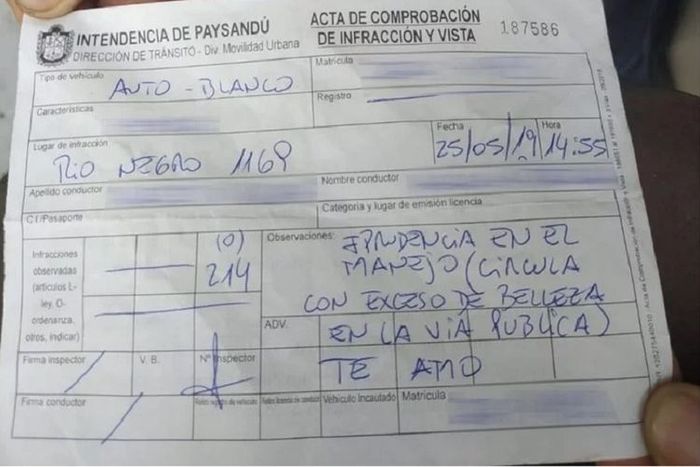 INTENDENCIA DE PAYSANDÚ
DIRECCIÓN DE TRÁNSITO - Div. Movilidad Urbana
ACTA DE COMPROBACIÓN
DE INFRACCIÓN Y VISTA
187586
Tipo de vehículo
AUTO - BLANCO
Matrícula
Características
Registro
Lugar de infracción
RIO NEGRO 1169
Fecha
25/05/19
Hora
14:55
Apellido conductor
Nombre conductor
C.I/Pasaporte
Categoría y lugar de emisión licencia
Infracciones
observadas
(artículos L-
ley, O-
ordenanza,
otros, indicar)
(O)
214
Observaciones:
IPRUDENCIA EN EL
MANEJO (CIRCULA
CON EXCESO DE BELLEZA
EN LA VIA PUBLICA)
ADV.
TE AMO
Firma inspector
V. B.
Nº Inspector
Firma conductor
Vehículo Incautado
Matrícula